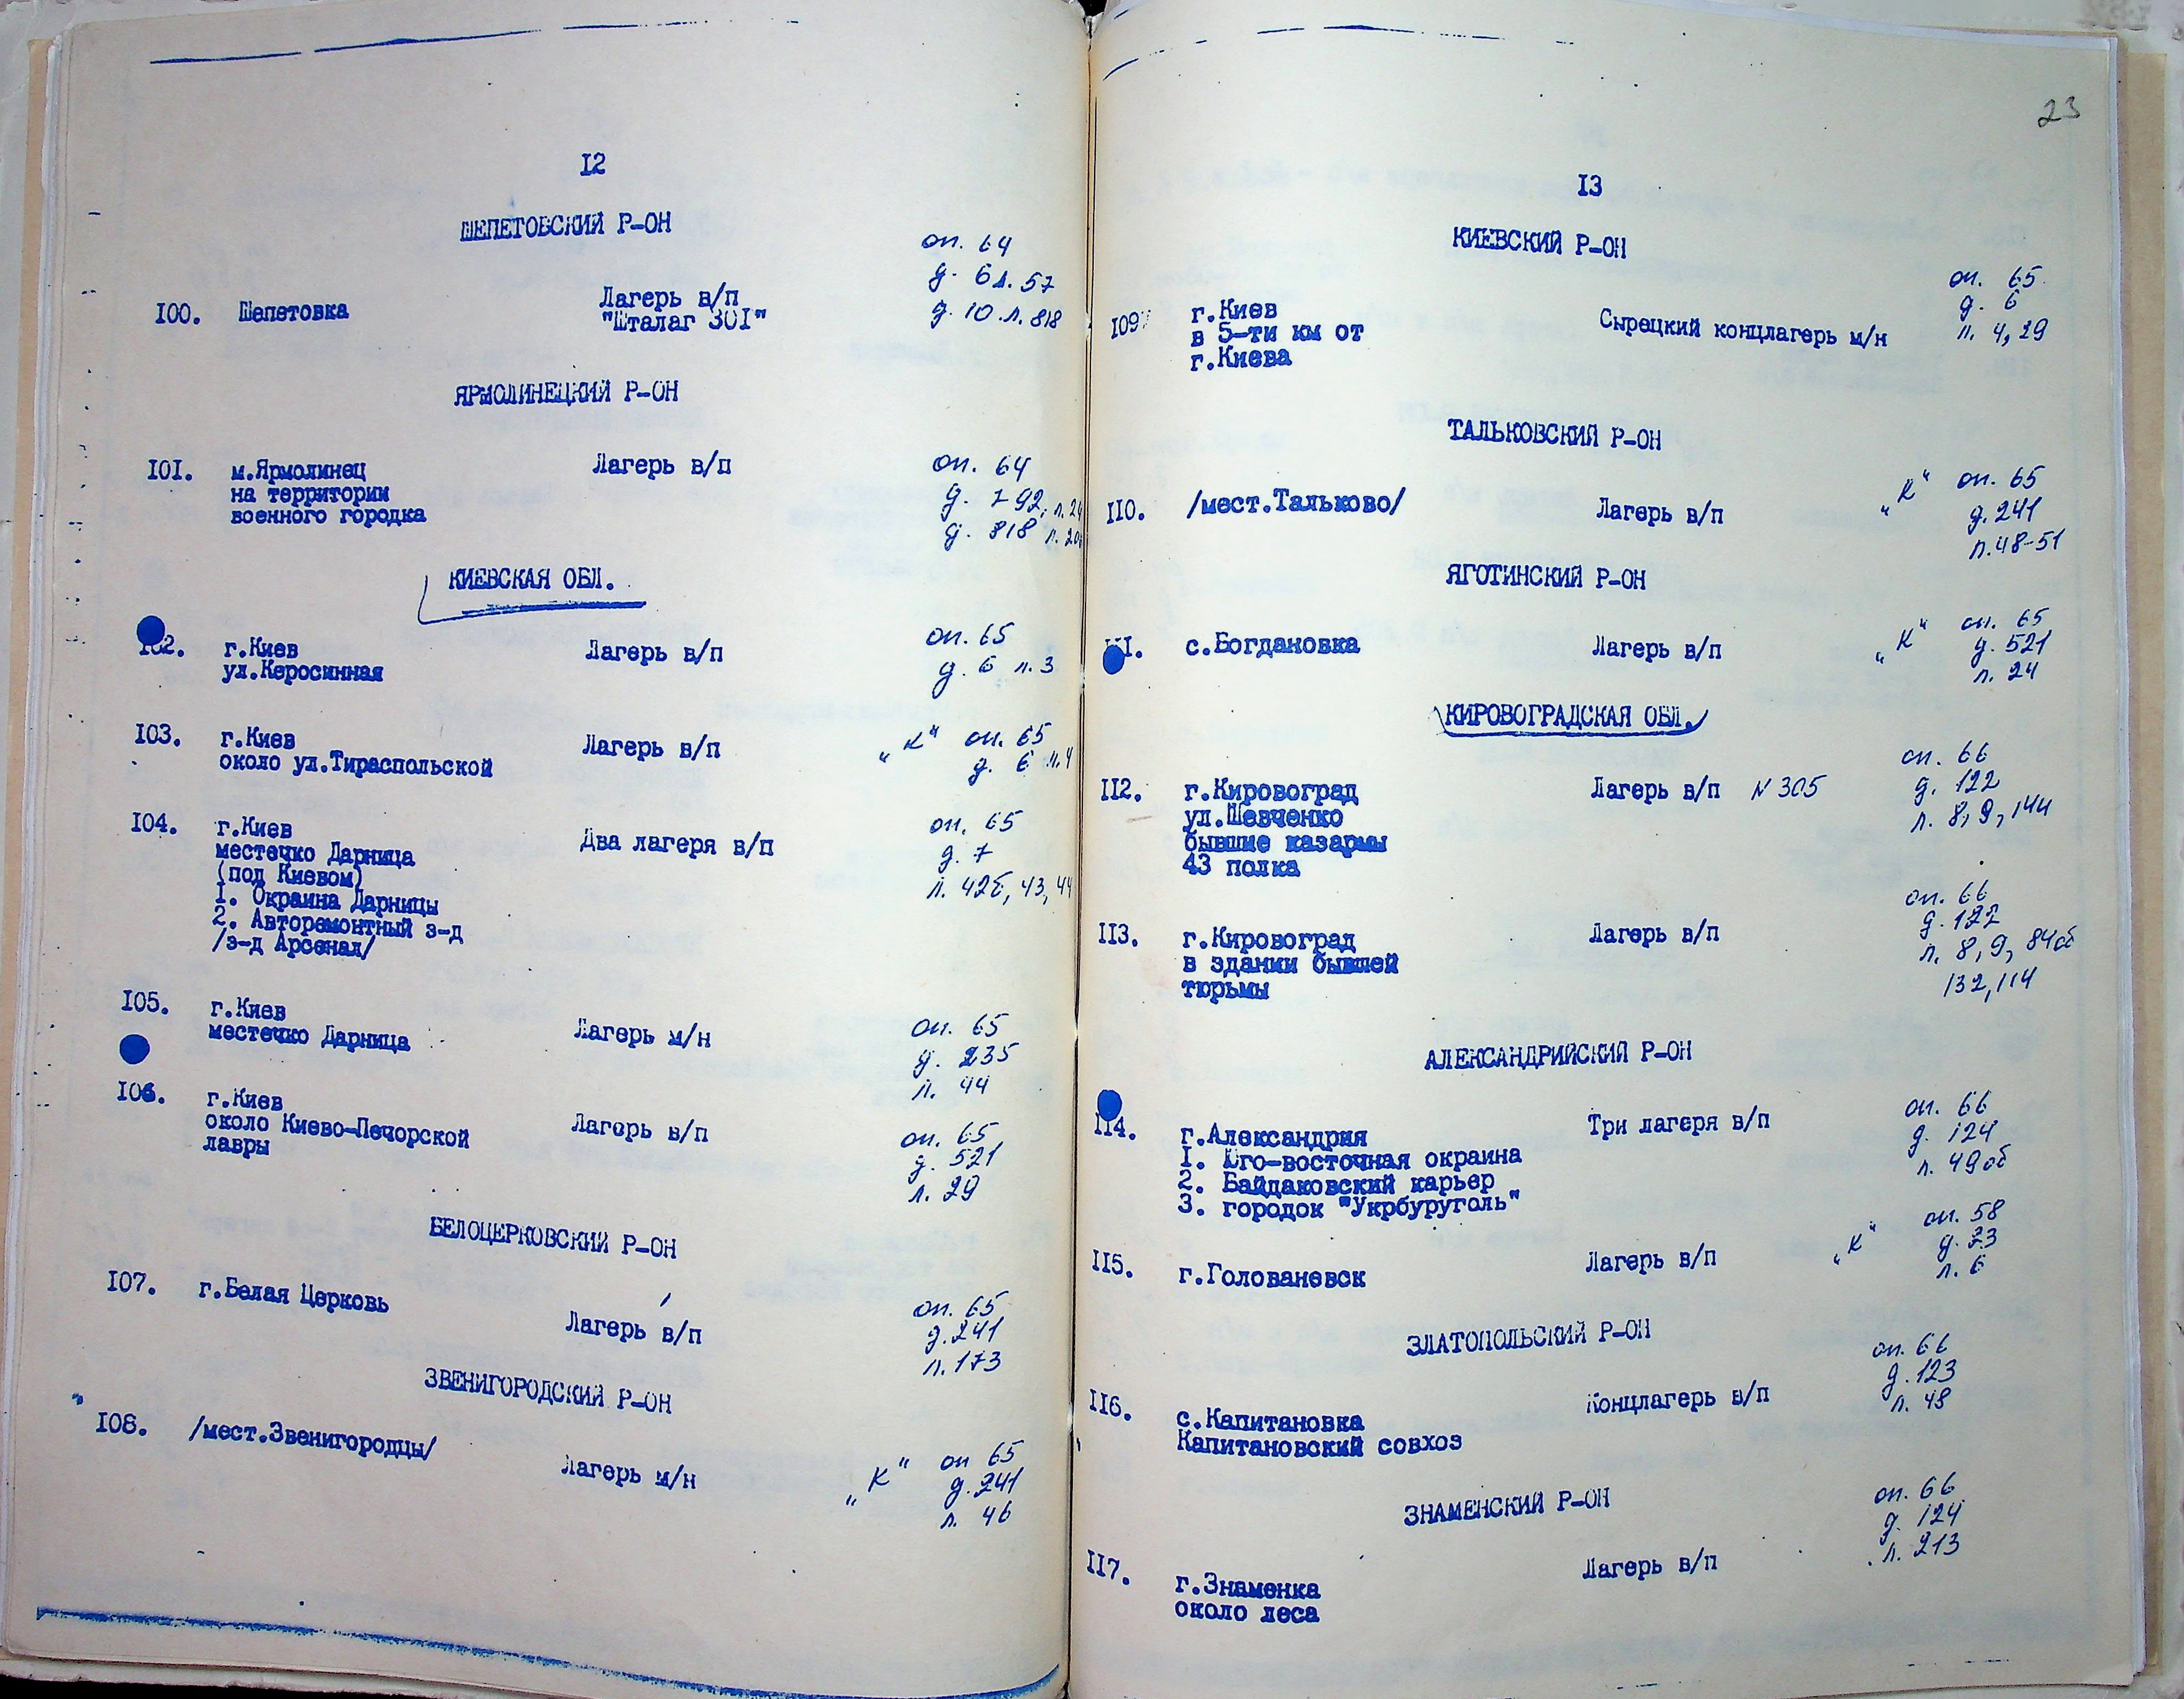 12
ШЕПЕТОВСКИЙ Р-ОН
100. Шепетовка Лагерь в/п оп. 64
"Шталаг 301" д. 6 л. 57
д. 10 л. 818
ЯРМОЛИНЕЦКИЙ Р-ОН
101. м.Ярмолинец Лагерь в/п оп. 64
на территории д. 792, л. 24
военного городка д. 818 л.
КИЕВСКАЯ ОБЛ.
102. г.Киев Лагерь в/п оп. 65
ул.Керосинная д. 6 л. 3
103. г.Киев Лагерь в/п „К" оп. 65
около ул.Тираспольской д. 6 л. 4
104. г.Киев Два лагеря в/п оп. 65
местечко Дарница д. 7
(под Киевом) л. 42б, 43, 44
1. Окраина Дарницы
2. Авторемонтный з-д
/з-д Арсенал/
105. г.Киев Лагерь м/н оп. 65
местечко Дарница д. 235
л. 44
106. г.Киев Лагерь в/п оп. 65
около Киево-Печорской д. 521
лавры л. 29
БЕЛОЦЕРКОВСКИЙ Р-ОН
107. г.Белая Церковь Лагерь в/п оп. 65
д. 241
л. 173
ЗВЕНИГОРОДСКИЙ Р-ОН
108. /мест.Звенигородцы/ Лагерь м/н „К" оп 65
д. 241
л. 46
23
13
КИЕВСКИЙ Р-ОН
109. г.Киев Сырецкий концлагерь м/н оп. 65
в 5-ти км от д. 6
г.Киева л. 4, 29
ТАЛЬКОВСКИЙ Р-ОН
110. /мест.Тальково/ Лагерь в/п „К" оп. 65
д. 241
л. 48-51
ЯГОТИНСКИЙ Р-ОН
111. с.Богдановка Лагерь в/п „К" оп. 65
д. 521
л. 24
КИРОВОГРАДСКАЯ ОБЛ.
112. г.Кировоград Лагерь в/п N 305 оп. 66
ул.Шевченко д. 122
бывшие казармы л. 8, 9, 144
43 полка
113. г.Кировоград Лагерь в/п оп. 66
в здании бывшей д. 122
тюрьмы л. 8, 9, 84об
132, 114
АЛЕКСАНДРИЙСКИЙ Р-ОН
114. г.Александрия Три лагеря в/п оп. 66
1. Юго-восточная окраина д. 124
2. Байдаковский карьер л. 49об
3. городок "Укрбуруголь"
115. г.Голованевск Лагерь в/п „К" оп. 58
д. 23
л. 6
ЗЛАТОПОЛЬСКИЙ Р-ОН
116. с.Капитановка Концлагерь в/п оп. 66
Капитановский совхоз д. 123
л. 48
ЗНАМЕНСКИЙ Р-ОН
117. г.Знаменка Лагерь в/п оп. 66
около леса д. 124
л. 213